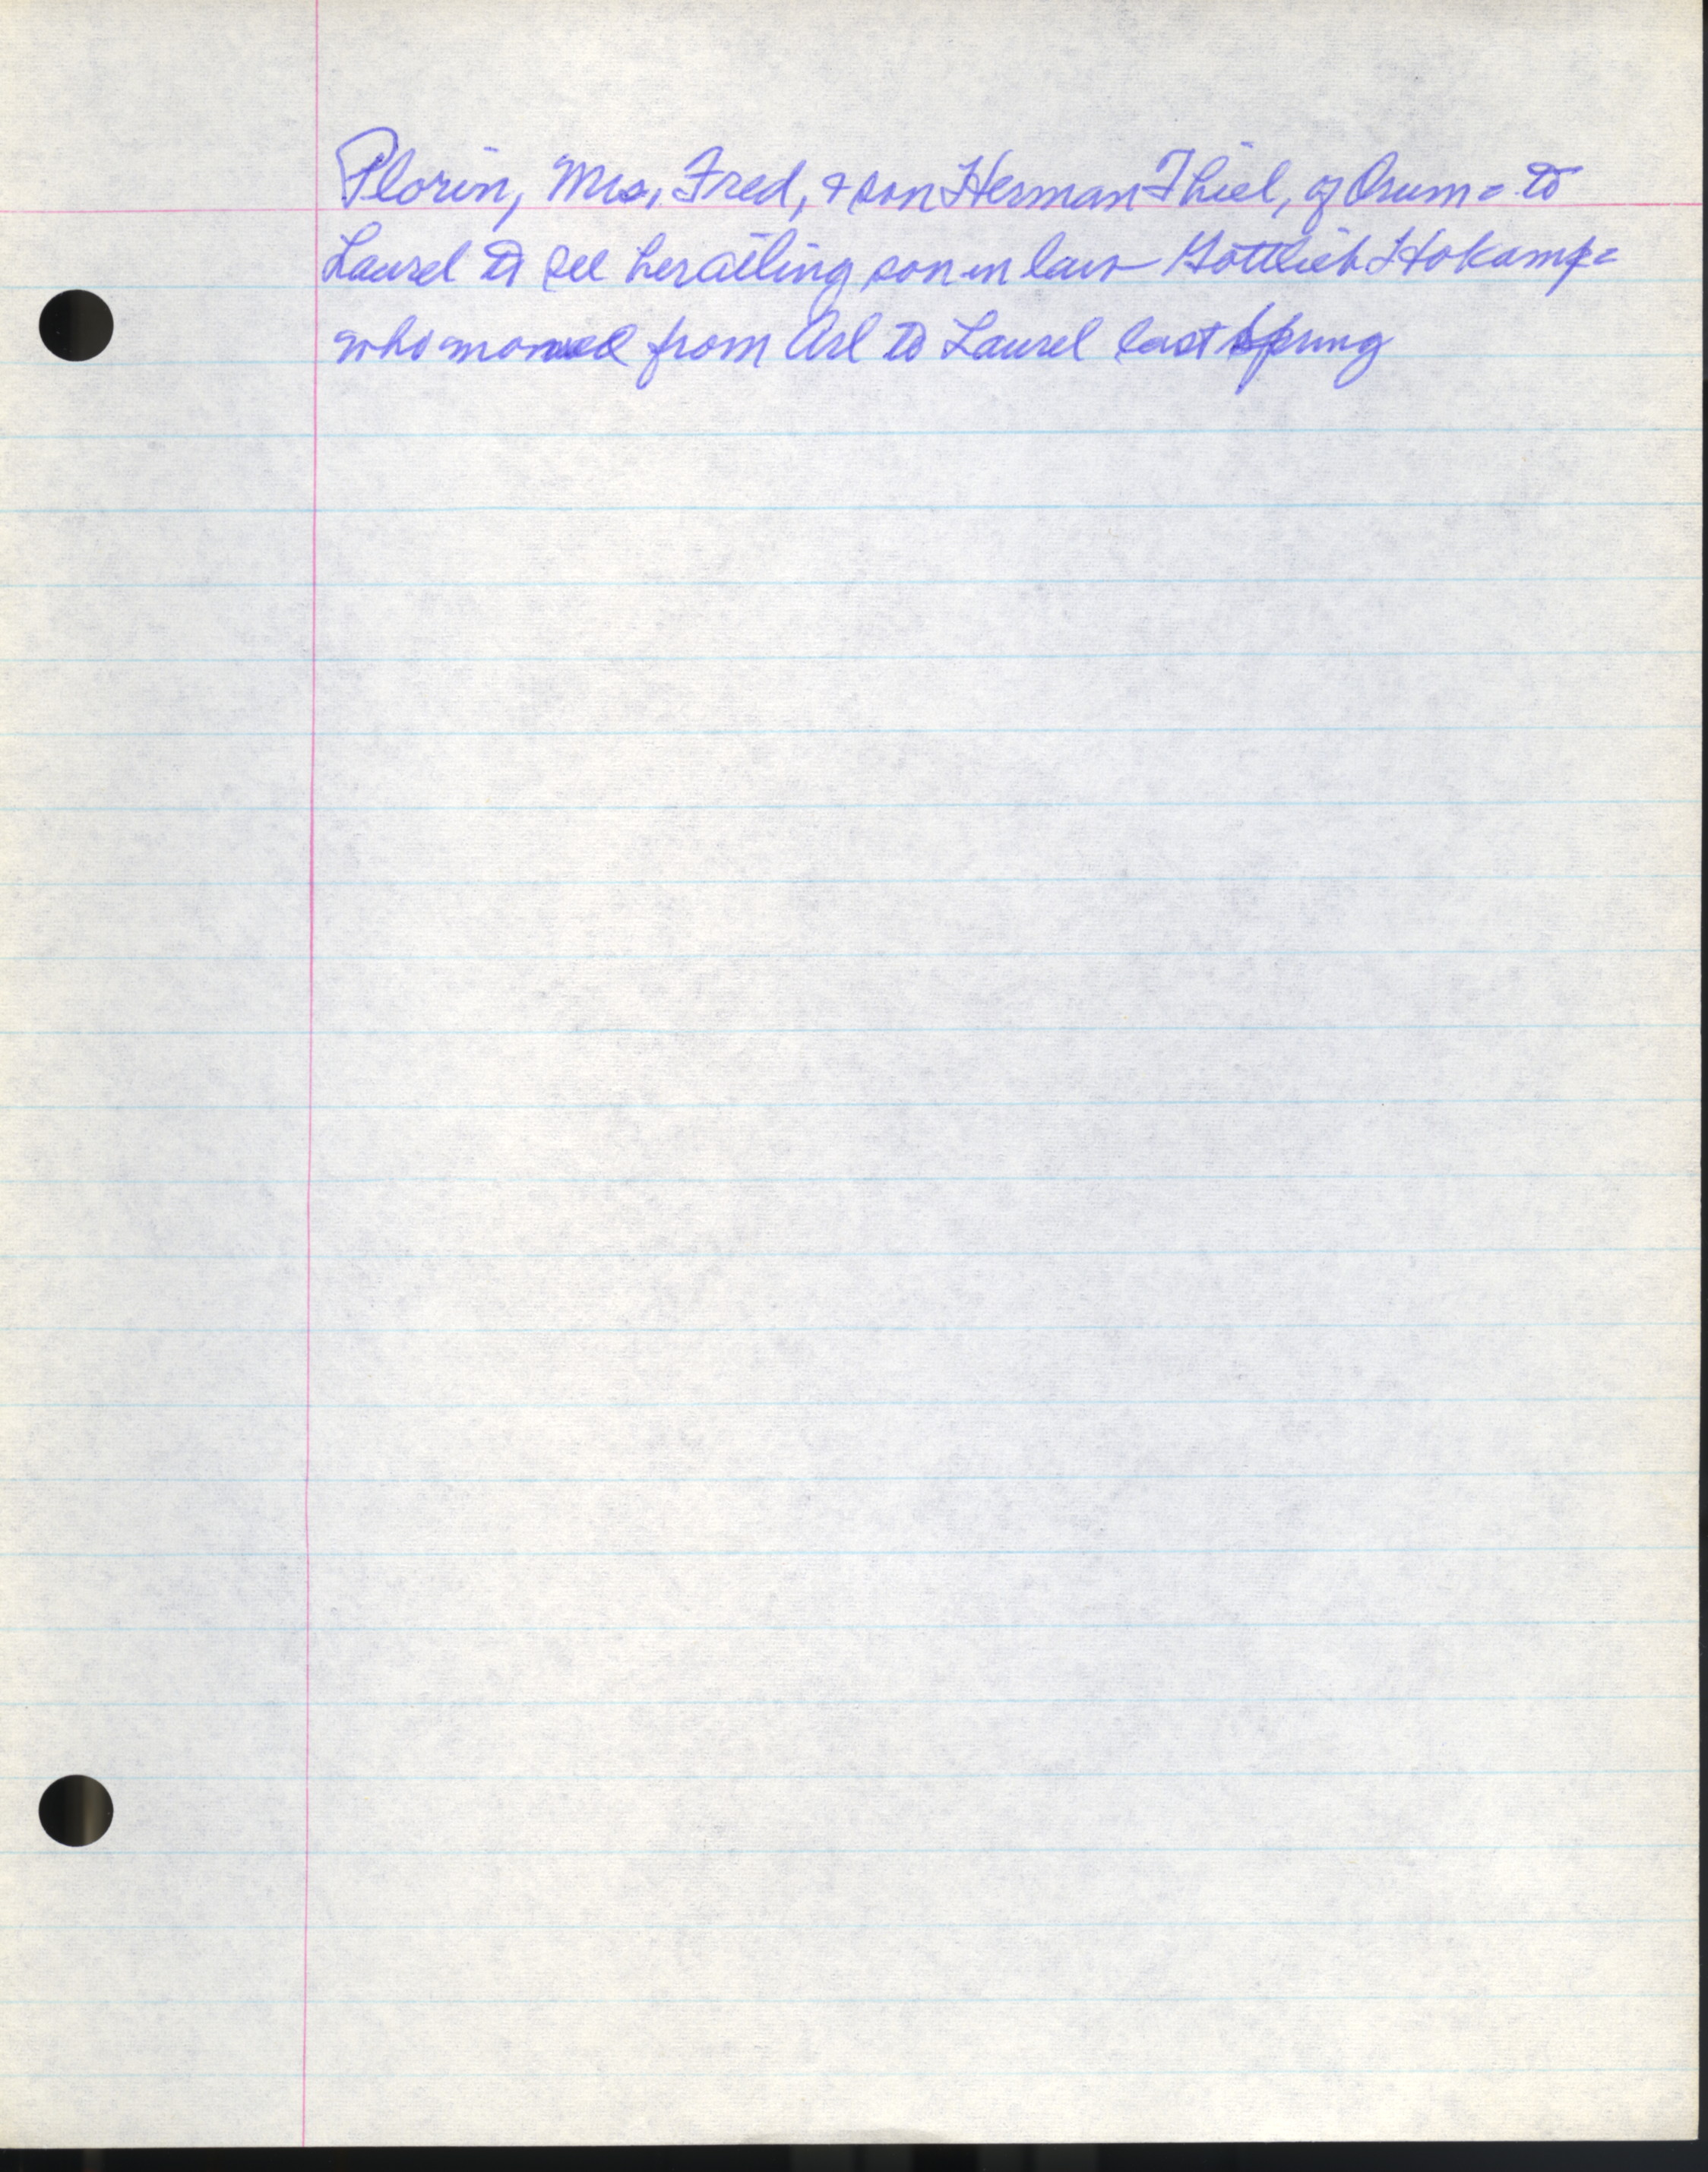 Plorin, Mrs. Fred, & son Herman Thiel, of Orum = to
Laurel to see her ailing son in law Gottlieb Hokamp =
who moved from Arl to Laurel last Spring